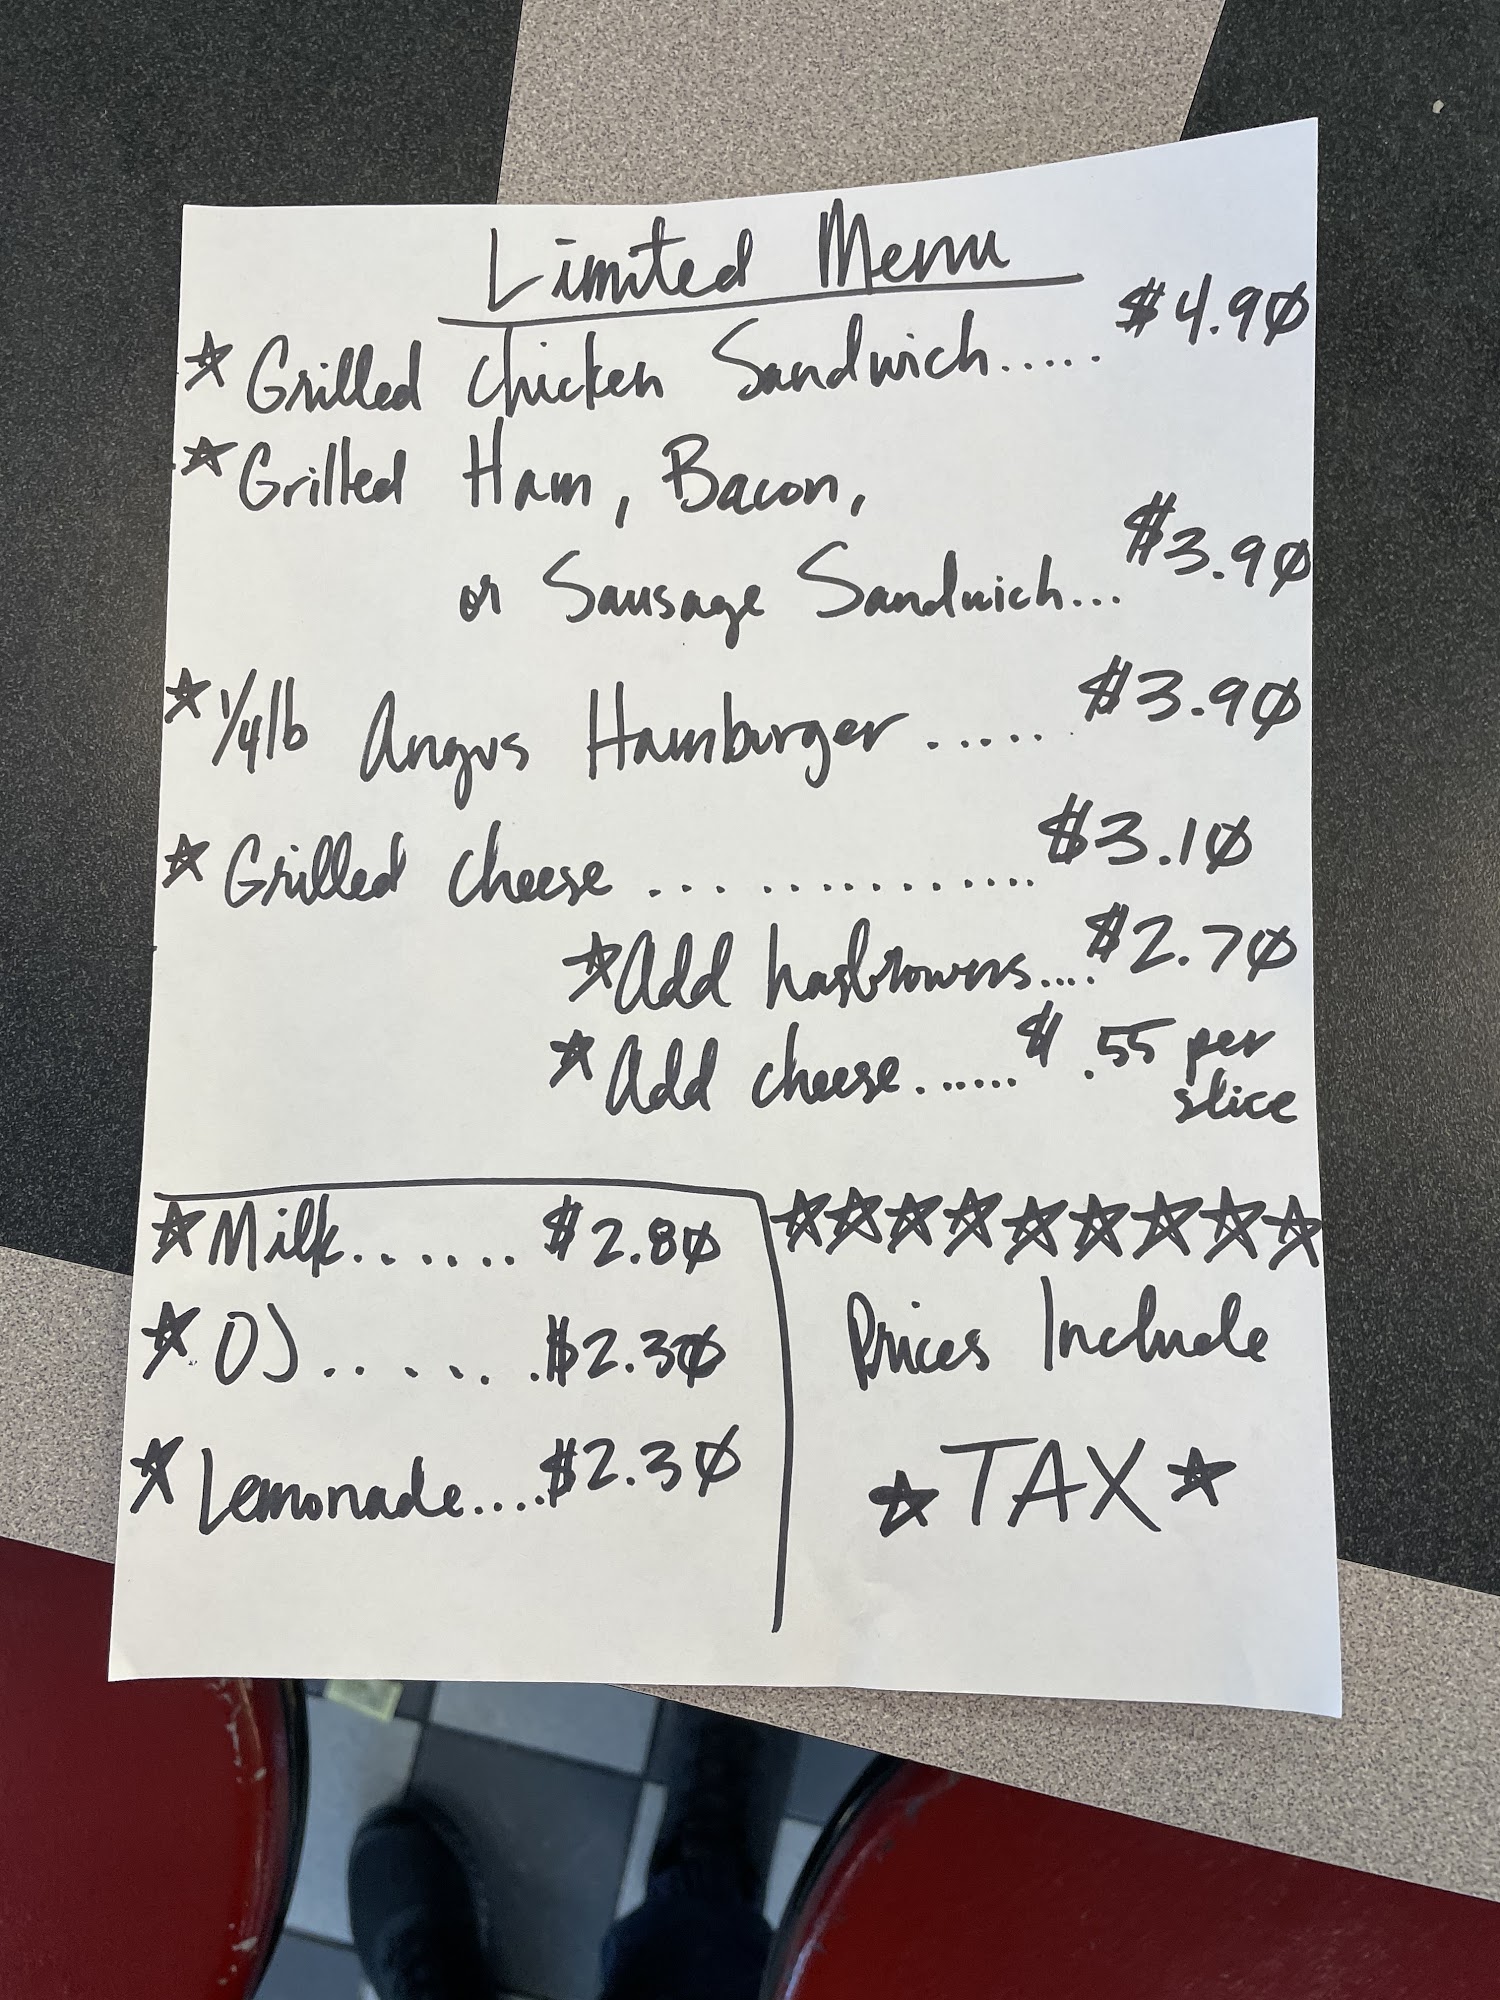 Limited Menu
☆ Grilled Chicken Sandwich..... $4.90
☆ Grilled Ham, Bacon,
or Sausage Sandwich... $3.90
☆ 1/4lb Angus Hamburger ..... $3.90
☆ Grilled Cheese ............... $3.10
☆ Add hasbrowns.... $2.70
☆ Add cheese....... $ .55 per
slice
☆ Milk....... $2.80
☆ OJ....... $2.30
☆ Lemonade.... $2.30
☆☆☆☆☆☆☆☆☆
Prices Include
☆ TAX ☆